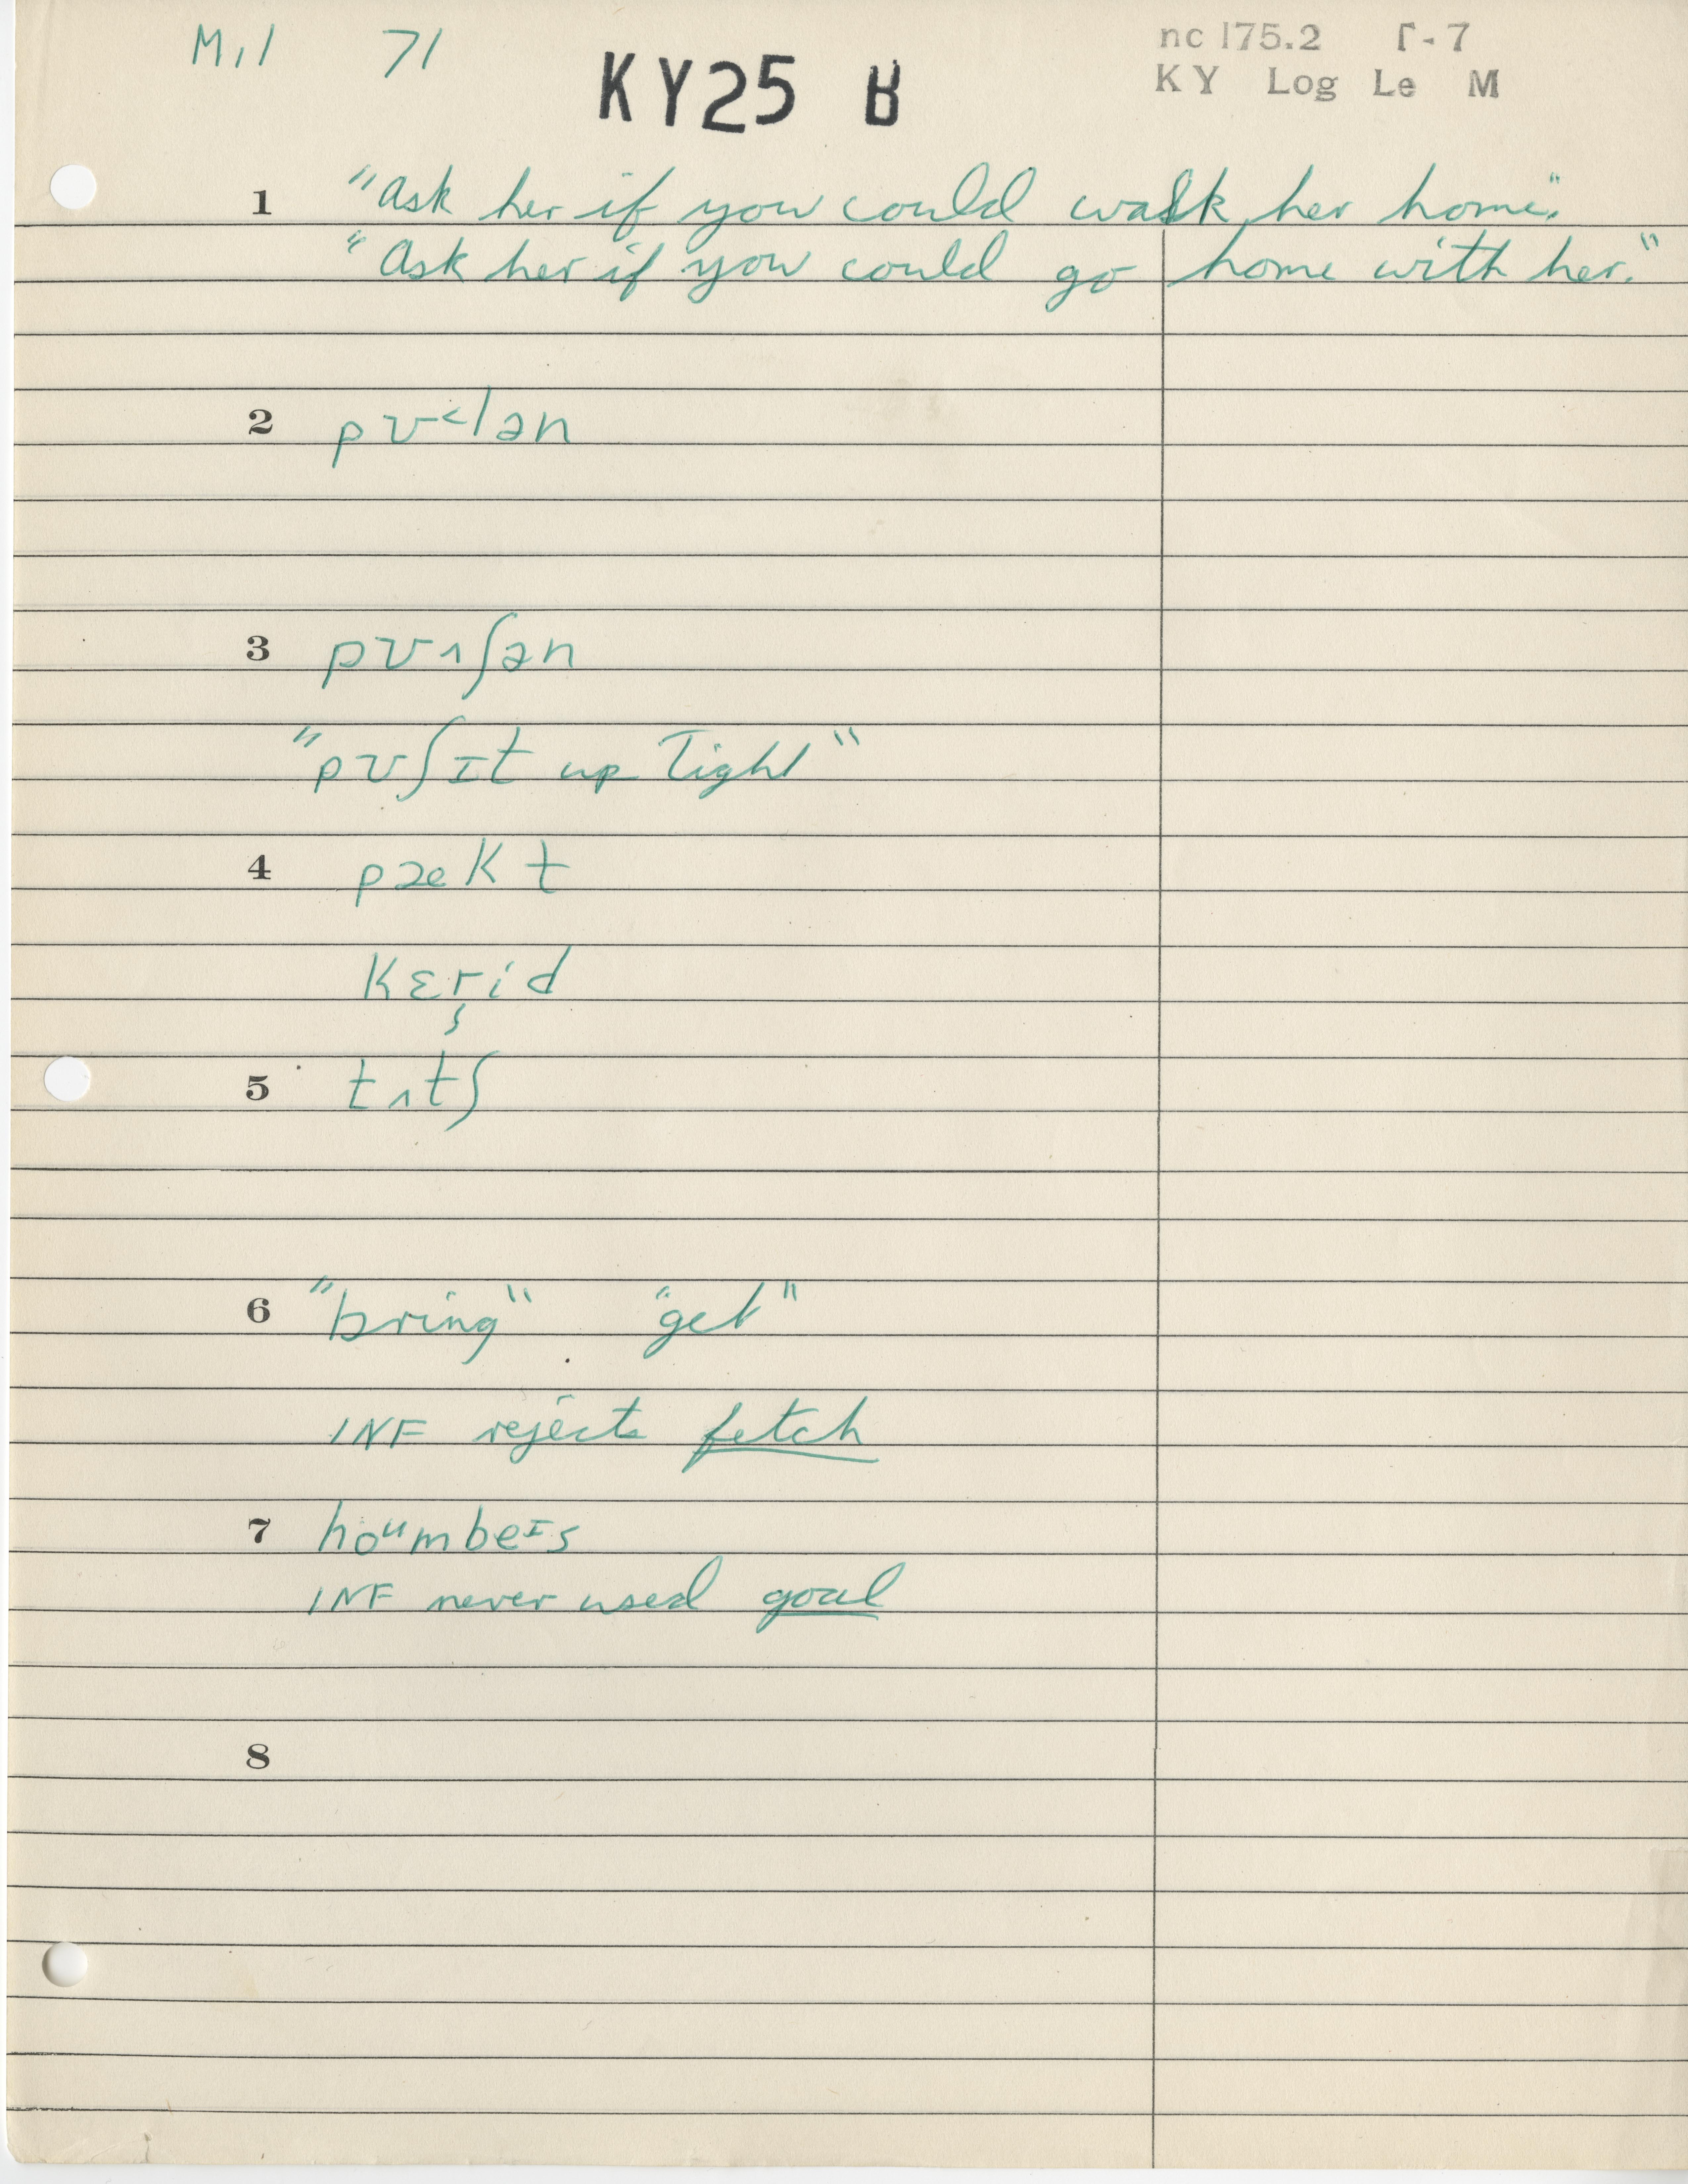 Mil 71
KY25 B
nc 175.2 Γ-7
KY Log Le M
1 "Ask her if you could walk her home."
"Ask her if you could go home with her."
2
3 pʊ˄ʃən
"pʊʃɪt up tight"
4 pækt
kɛr̡id
5 tʌtʃ
6 "bring" "get"
INF rejects fetch
7 hoᵘmbeᶦs
INF never used goal
8